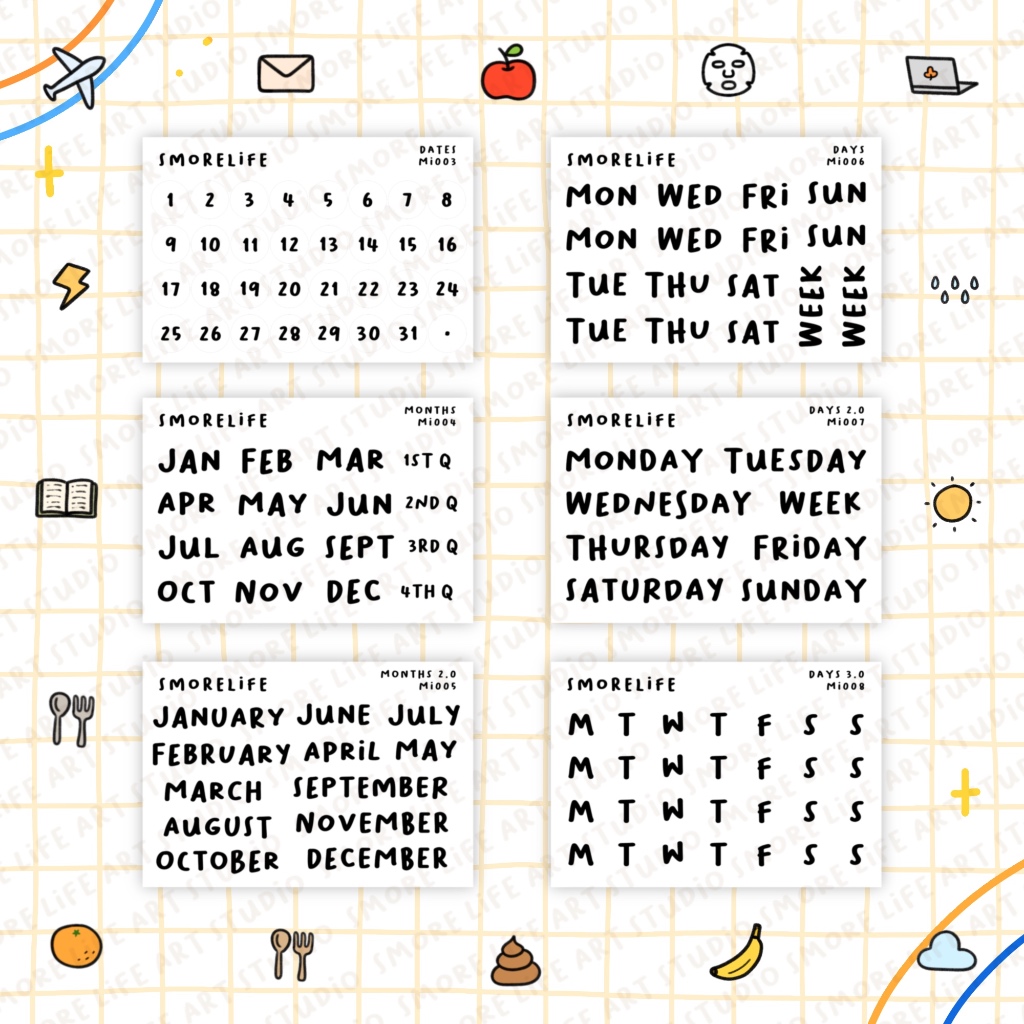 SMORELiFE
DATES
Mi003
1 2 3 4 5 6 7 8
9 10 11 12 13 14 15 16
17 18 19 20 21 22 23 24
25 26 27 28 29 30 31 •
SMORELiFE
DAYS
Mi006
MON WED FRi SUN
MON WED FRi SUN
TUE THU SAT
TUE THU SAT
WEEK
WEEK
SMORELiFE
MONTHS
Mi004
JAN FEB MAR 1ST Q
APR MAY JUN 2ND Q
JUL AUG SEPT 3RD Q
OCT NOV DEC 4TH Q
SMORELiFE
DAYS 2.0
Mi007
MONDAY TUESDAY
WEDNESDAY WEEK
THURSDAY FRiDAY
SATURDAY SUNDAY
SMORELiFE
MONTHS 2.0
Mi005
JANUARY JUNE JULY
FEBRUARY APRiL MAY
MARCH SEPTEMBER
AUGUST NOVEMBER
OCTOBER DECEMBER
SMORELiFE
DAYS 3.0
Mi008
M T W T F S S
M T W T F S S
M T W T F S S
M T W T F S S
SMORE LiFE ART STUDiO